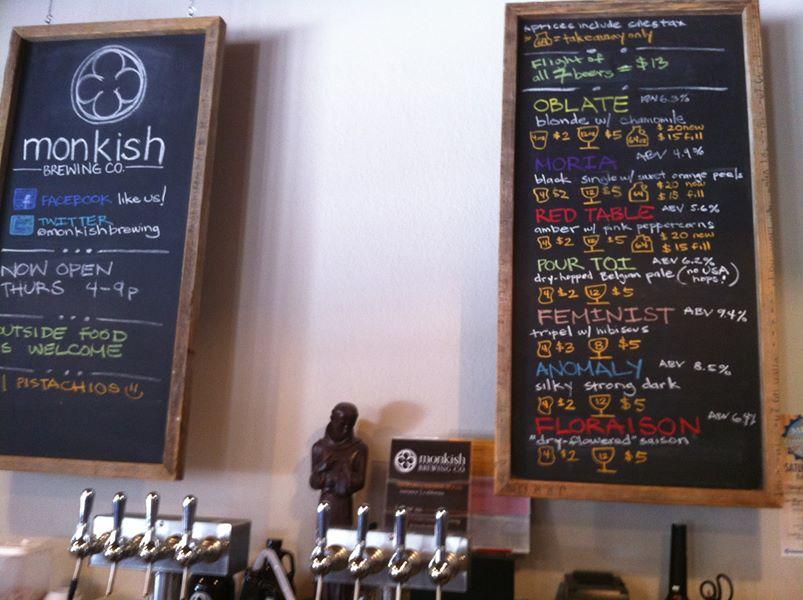 monkish
BREWING CO.
FACEBOOK like us!
TWITTER
@monkishbrewing
NOW OPEN
THURS 4-9p
OUTSIDE FOOD
IS WELCOME
PISTACHIOS
prices include sales tax
64 = takeaway only
Flight of
all 7 beers = $13
OBLATE ABV 6.3%
blonde w/ chamomile
4 $2 12 $5 64oz $20 new
$15 fill
MORIA ABV 4.9%
black single w/ sweet orange peels
4 $2 12 $5 64 $20 new
$15 fill
RED TABLE ABV 5.6%
amber w/ pink peppercorns
4 $2 12 $5 64 $20 new
$15 fill
POUR TOI ABV 6.2%
dry-hopped Belgian pale (no USA
hops!)
4 $2 12 $5
FEMINIST ABV 9.4%
tripel w/ hibiscus
4 $3 8 $5
ANOMALY ABV 8.5%
silky strong dark
4 $2 12 $5
FLORAISON ABV 6.4%
"dry-flowered" saison
4 $2 12 $5
monkish
BREWING CO.